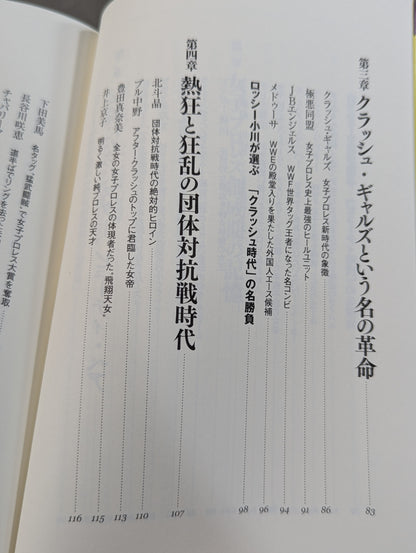 第三章 クラッシュ・ギャルズという名の革命 83
クラッシュ・ギャルズ 女子プロレス新時代の象徴 86
極悪同盟 女子プロレス史上最強のヒールユニット 91
JBエンジェルス WWF世界タッグ王者になった名コンビ 94
メドゥーサ WWEの殿堂入りを果たした外国人エース候補 96
ロッシー小川が選ぶ 「クラッシュ時代」の名勝負 98
第四章 熱狂と狂乱の団体対抗戦時代 107
北斗晶 団体対抗戦時代の絶対的ヒロイン 110
ブル中野 アフター・クラッシュのトップに君臨した女帝 113
豊田真奈美 全女の女子プロレスの体現者だった“飛翔天女” 115
井上京子 明るく楽しい純プロレスの天才 116
下田美馬 名タッグ“猛武闘賊”で女子プロレス大賞を奪取
長谷川咲恵 選手はてリングを去った
チャパリータ